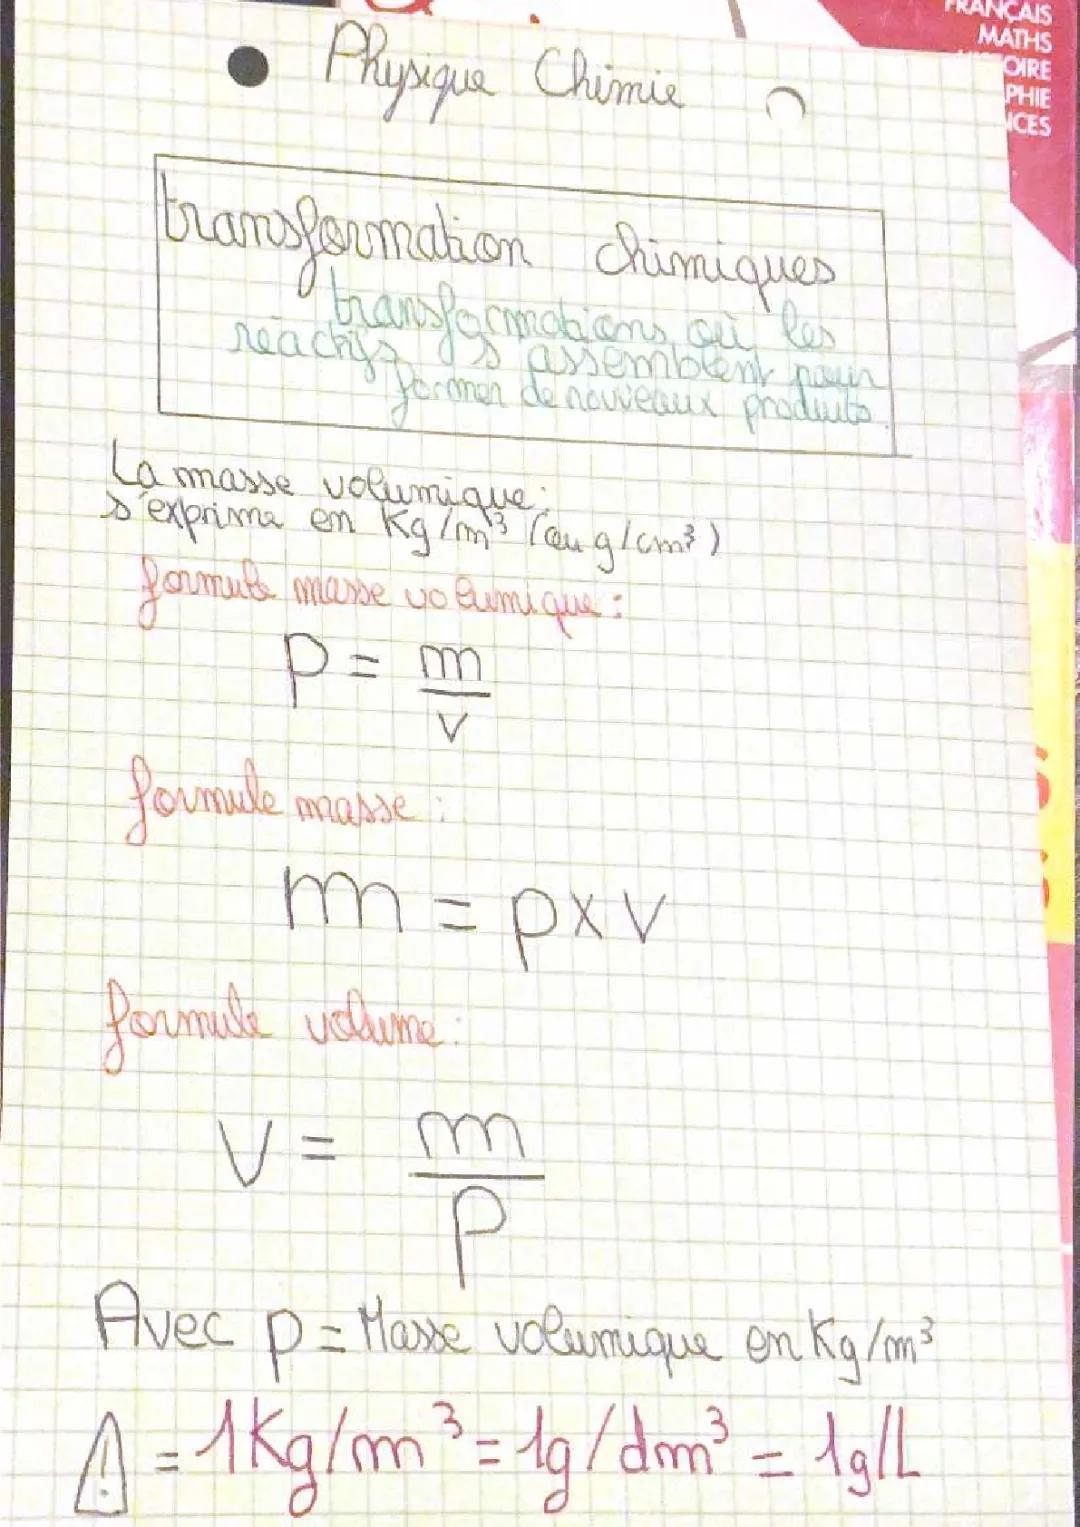 FRANÇAIS
MATHS
OIRE
PHIE
NCES
Physique Chimie
transformation chimiques
transformations où les
réactifs s'assemblent pour
former de nouveaux produits.
La masse volumique:
s'exprime en Kg/m³ (ou g/cm³)
formule masse volumique:
p = m
v
formule masse:
m = p x v
formule volume:
V = m
p
Avec p = Masse volumique en Kg/m³
! = 1Kg/m³ = 1g/dm³ = 1g/L